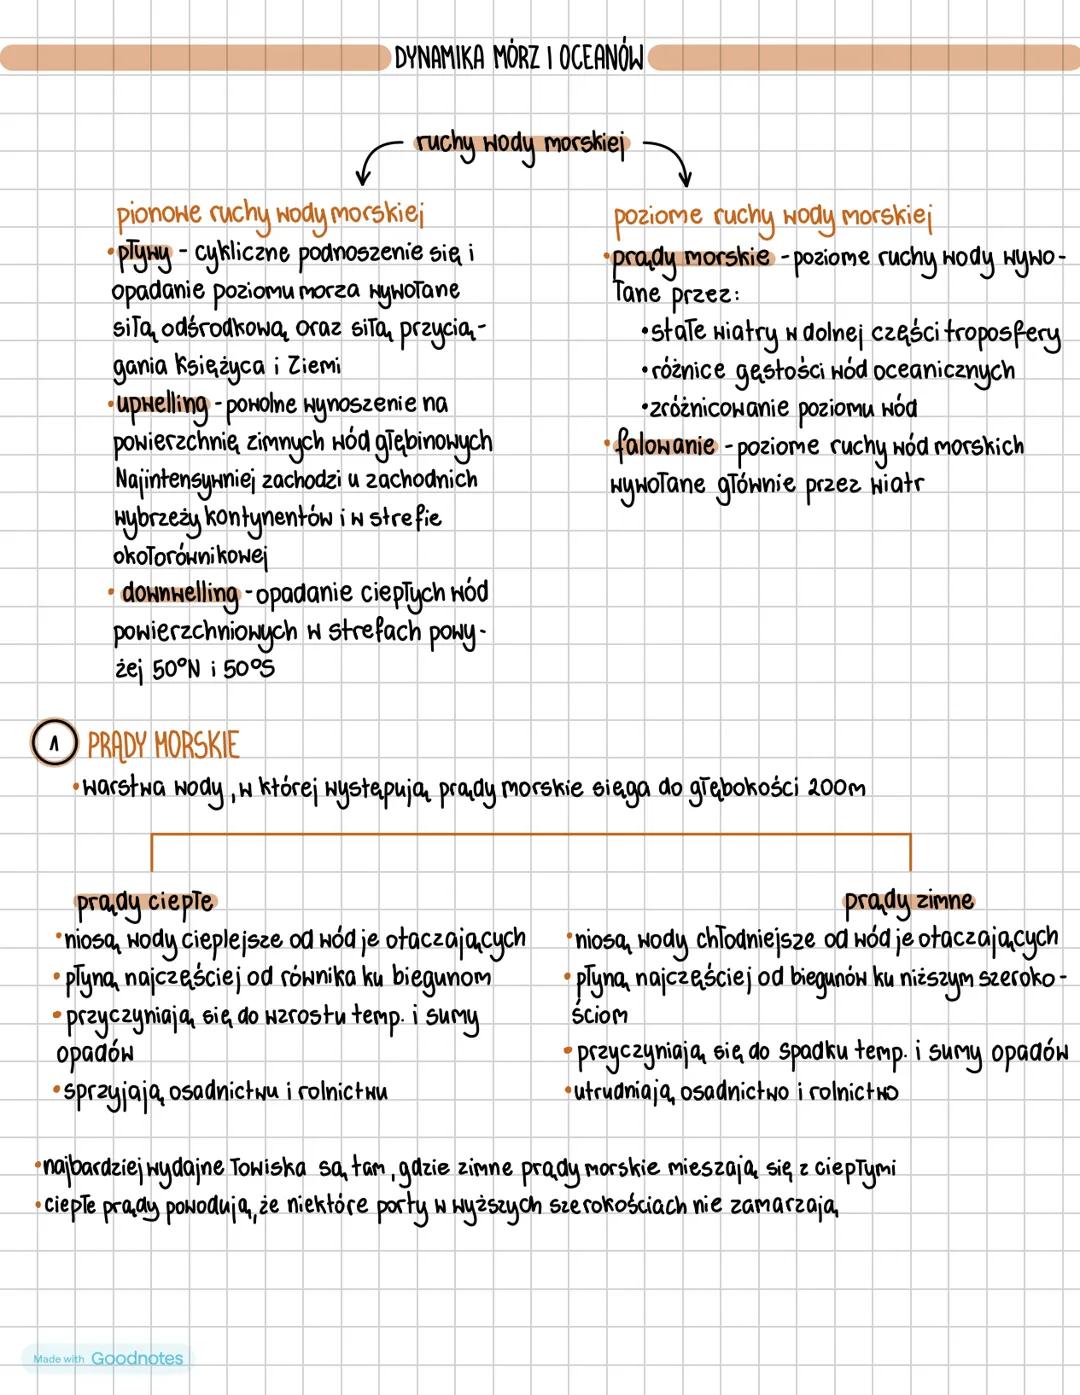 DYNAMIKA MÓRZ I OCEANÓW
ruchy wody morskiej
pionowe ruchy wody morskiej
•pływy - cykliczne podnoszenie się i
opadanie poziomu morza wywołane
siłą odśrodkową oraz siłą przycią-
gania Księżyca i Ziemi
•upwelling - powolne wynoszenie na
powierzchnię zimnych wód głębinowych
Najintensywniej zachodzi u zachodnich
wybrzeży kontynentów i w strefie
okołorównikowej
• downwelling - opadanie ciepłych wód
powierzchniowych w strefach powy-
żej 50°N i 50°S
poziome ruchy wody morskiej
•prądy morskie - poziome ruchy wody wywo-
łane przez:
•stałe wiatry w dolnej części troposfery
•różnice gęstości wód oceanicznych
•zróżnicowanie poziomu wód
•falowanie - poziome ruchy wód morskich
wywołane głównie przez wiatr
1 PRĄDY MORSKIE
•warstwa wody, w której występują prądy morskie sięga do głębokości 200m
prądy ciepłe
•niosą wody cieplejsze od wód je otaczających
•płyną najczęściej od równika ku biegunom
•przyczyniają się do wzrostu temp. i sumy
opadów
•sprzyjają osadnictwu i rolnictwu
prądy zimne
•niosą wody chłodniejsze od wód je otaczających
•płyną najczęściej od biegunów ku niższym szeroko-
ściom
•przyczyniają się do spadku temp. i sumy opadów
•utrudniają osadnictwo i rolnictwo
•najbardziej wydajne łowiska są tam, gdzie zimne prądy morskie mieszają się z ciepłymi
•ciepłe prądy powodują, że niektóre porty w wyższych szerokościach nie zamarzają
Made with Goodnotes